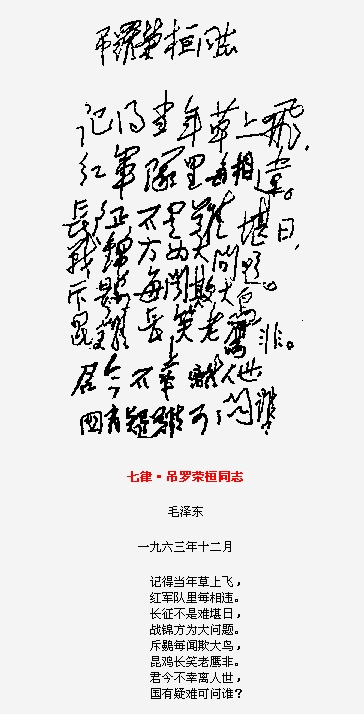 吊罗荣桓同志
记得当年草上飞,
红军队里每相违。
长征不是难堪日,
战锦方为大问题。
斥鷃每闻欺大鸟,
昆鸡长笑老鹰非。
君今不幸离人世,
国有疑难可问谁
七律·吊罗荣桓同志
毛泽东
一九六三年十二月
记得当年草上飞,
红军队里每相违。
长征不是难堪日,
战锦方为大问题。
斥鷃每闻欺大鸟,
昆鸡长笑老鹰非。
君今不幸离人世,
国有疑难可问谁?